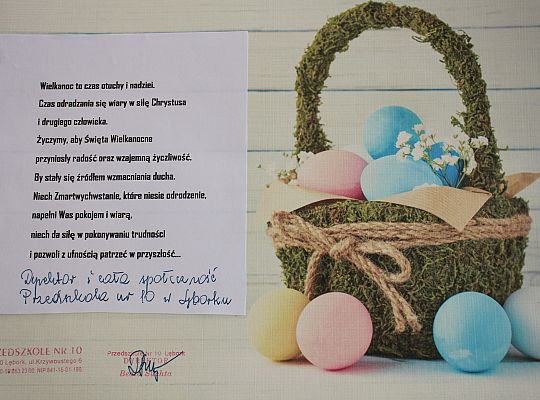 Wielkanoc to czas otuchy i nadziei.
Czas odradzania się wiary w siłę Chrystusa
i drugiego człowieka.
Życzymy, aby Święta Wielkanocne
przyniosły radość oraz wzajemną życzliwość.
By stały się źródłem wzmacniania ducha.
Niech Zmartwychwstanie, które niesie odrodzenie,
napełni Was pokojem i wiarą,
niech da siłę w pokonywaniu trudności
i pozwoli z ufnością patrzeć w przyszłość...
Dyrektor i cała społeczność
Przedszkola nr 10 w Lęborku
ZEDSZKOLE NR 10
Lębork, ul. Krzywoustego
Przedszkole Nr 10 Lębork
DYREKTOR